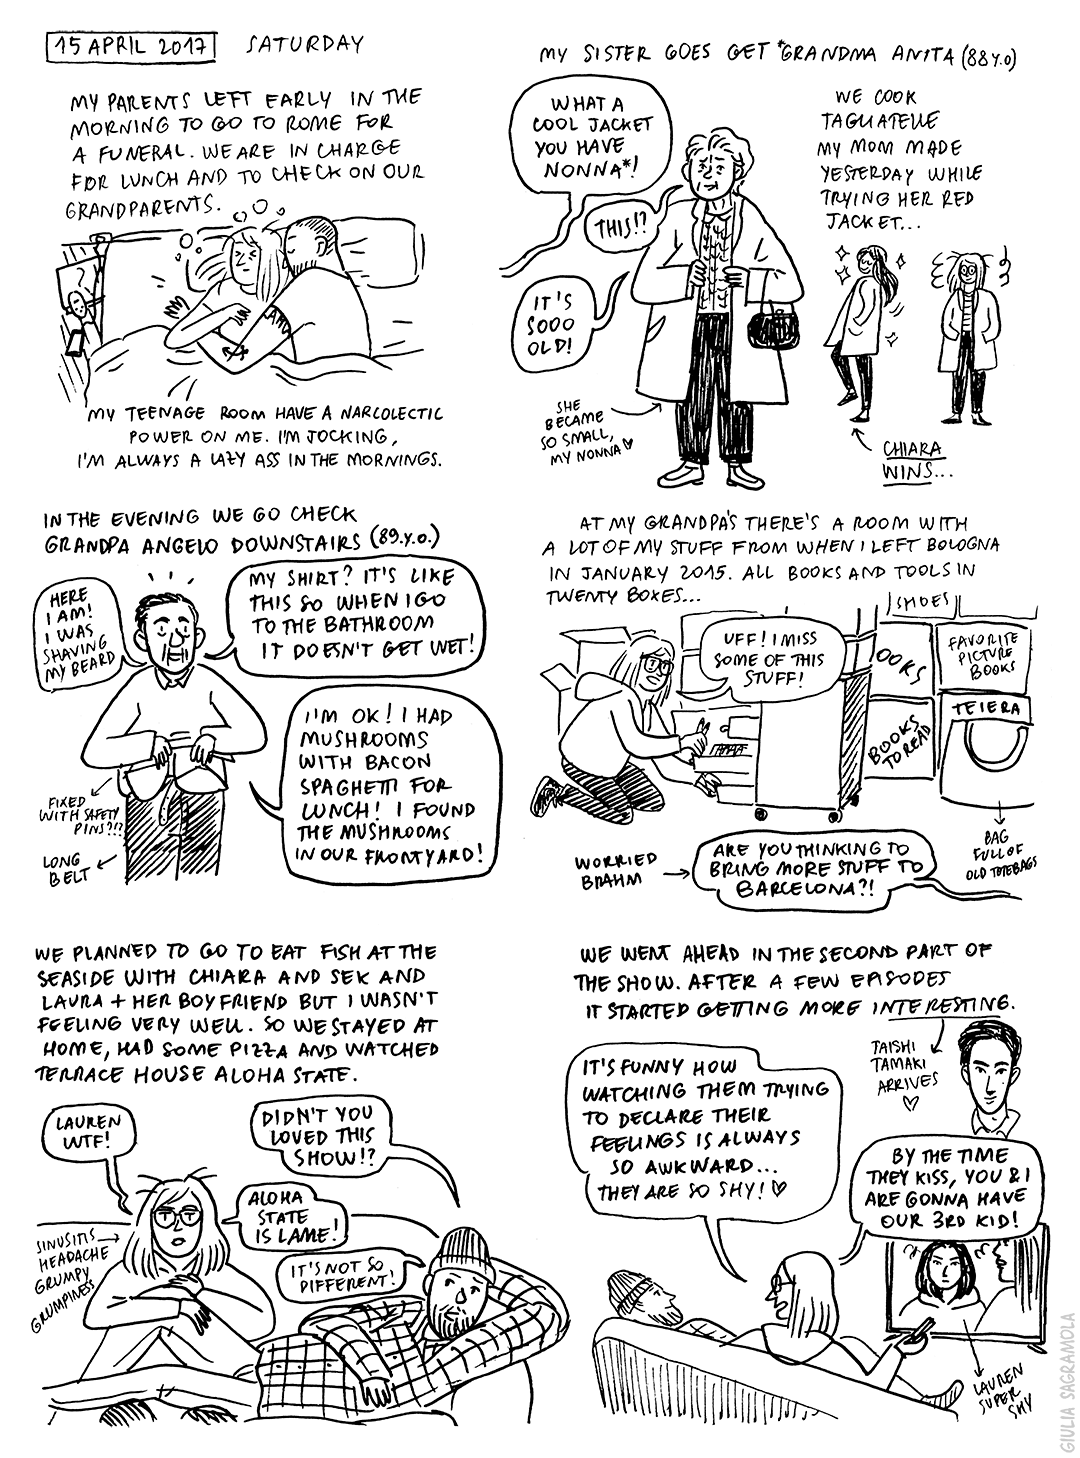 15 APRIL 2017 SATURDAY
MY PARENTS LEFT EARLY IN THE
MORNING TO GO TO ROME FOR
A FUNERAL. WE ARE IN CHARGE
FOR LUNCH AND TO CHECK ON OUR
GRANDPARENTS.
MY TEENAGE ROOM HAVE A NARCOLECTIC
POWER ON ME. I'M JOCKING,
I'M ALWAYS A LAZY ASS IN THE MORNINGS.
MY SISTER GOES GET *GRANDMA ANITA (88 Y.O)
WHAT A
COOL JACKET
YOU HAVE
NONNA*!
THIS!?
IT'S
SOOO
OLD!
SHE
BECAME
SO SMALL,
MY NONNA ♡
WE COOK
TAGLIATELLE
MY MOM MADE
YESTERDAY WHILE
TRYING HER RED
JACKET...
CHIARA
WINS...
IN THE EVENING WE GO CHECK
GRANDPA ANGELO DOWNSTAIRS (89.Y.O.)
HERE
I AM!
I WAS
SHAVING
MY BEARD
MY SHIRT? IT'S LIKE
THIS SO WHEN I GO
TO THE BATHROOM
IT DOESN'T GET WET!
I'M OK! I HAD
MUSHROOMS
WITH BACON
SPAGHETTI FOR
LUNCH! I FOUND
THE MUSHROOMS
IN OUR FRONTYARD!
FIXED
WITH SAFETY
PINS?!?
LONG
BELT
AT MY GRANDPA'S THERE'S A ROOM WITH
A LOT OF MY STUFF FROM WHEN I LEFT BOLOGNA
IN JANUARY 2015. ALL BOOKS AND TOOLS IN
TWENTY BOXES...
SHOES
UFF! I MISS
SOME OF THIS
STUFF!
OOKS
FAVORITE
PICTURE
BOOKS
BOOKS
TO READ
TEIERA
BAG
FULL OF
OLD TOTEBAGS
WORRIED
BRAHM
ARE YOU THINKING TO
BRING MORE STUFF TO
BARCELONA?!
WE PLANNED TO GO TO EAT FISH AT THE
SEASIDE WITH CHIARA AND SEK AND
LAURA + HER BOYFRIEND BUT I WASN'T
FEELING VERY WELL. SO WE STAYED AT
HOME, HAD SOME PIZZA AND WATCHED
TERRACE HOUSE ALOHA STATE.
LAUREN
WTF!
DIDN'T YOU
LOVED THIS
SHOW!?
ALOHA
STATE
IS LAME!
IT'S NOT SO
DIFFERENT!
SINUSITIS
HEADACHE
GRUMPY
GRUMPINESS
WE WENT AHEAD IN THE SECOND PART OF
THE SHOW. AFTER A FEW EPISODES
IT STARTED GETTING MORE INTERESTING.
TAISHI
TAMAKI
ARRIVES
♡
IT'S FUNNY HOW
WATCHING THEM TRYING
TO DECLARE THEIR
FEELINGS IS ALWAYS
SO AWKWARD...
THEY ARE SO SHY! ♡
BY THE TIME
THEY KISS, YOU & I
ARE GONNA HAVE
OUR 3RD KID!
LAUREN
SUPER
SHY
GIULIA SAGRAMOLA